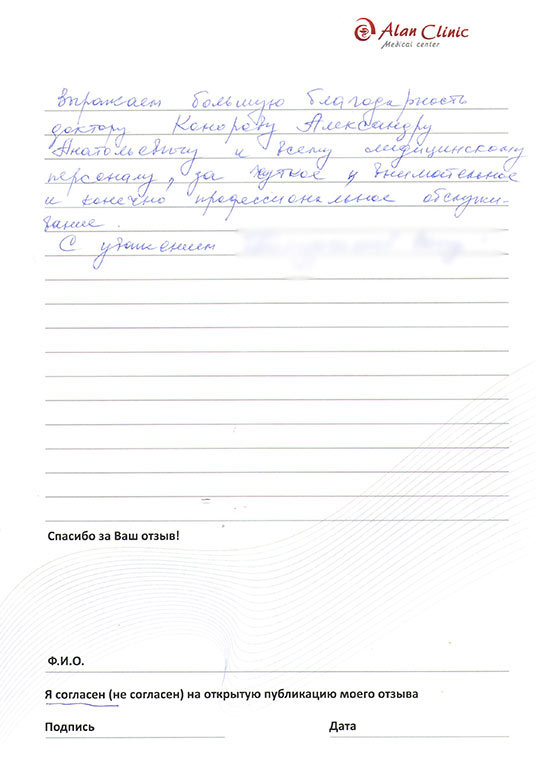 Alan Clinic
Medical center
выражаем большую благодарность
доктору Конорову Александру
Анатольевичу и всему медицинскому
персоналу, за чуткое и внимательное
и конечно профессиональное обслужи-
вание.
С уважением
Спасибо за Ваш отзыв!
Ф.И.О.
Я согласен (не согласен) на открытую публикацию моего отзыва
Подпись Дата